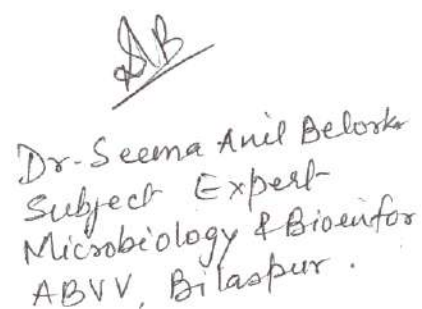 Dr. Seema Anil Belorkar
Subject Expert
Microbiology & Bioinfor
ABVV, Bilaspur.